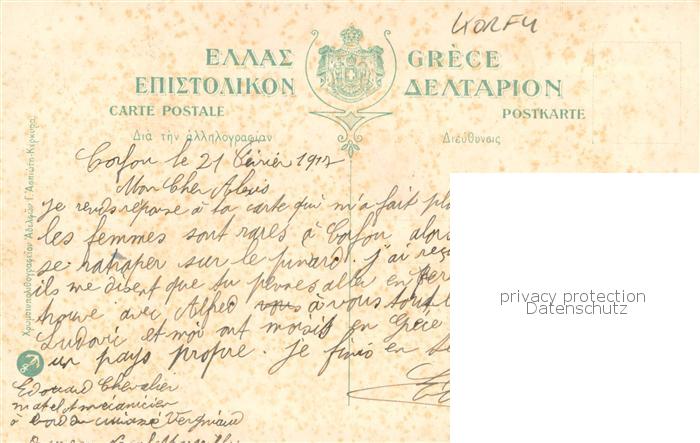 KORFU
ΕΛΛΑΣ GRÈCE
ΕΠΙΣΤΟΛΙΚΟΝ ΔΕΛΤΑΡΙΟΝ
CARTE POSTALE POSTKARTE
Διὰ τὴν ἀλληλογραφίαν Διεύθυνσις
Χρωμοτυπολιθογραφεῖον Ἀδελφῶν Γ. Ἀσπιώτη-Κέρκυρα
Corfou le 21 Février 1917
Mon Cher Alexis
Je rends réponse à ta carte qui m'a fait
les femmes sont rares à Corfou alors
se rataper sur le pinard. J'ai
ils me disent que tu penses aller en
trouve avec Alfred à vous
Ludovic et moi ont en Grèce
un pays propre. Je finis en
Edouard Chevalier
matelot mécanicien
à bord du Vergniaud
privacy protection
Datenschutz